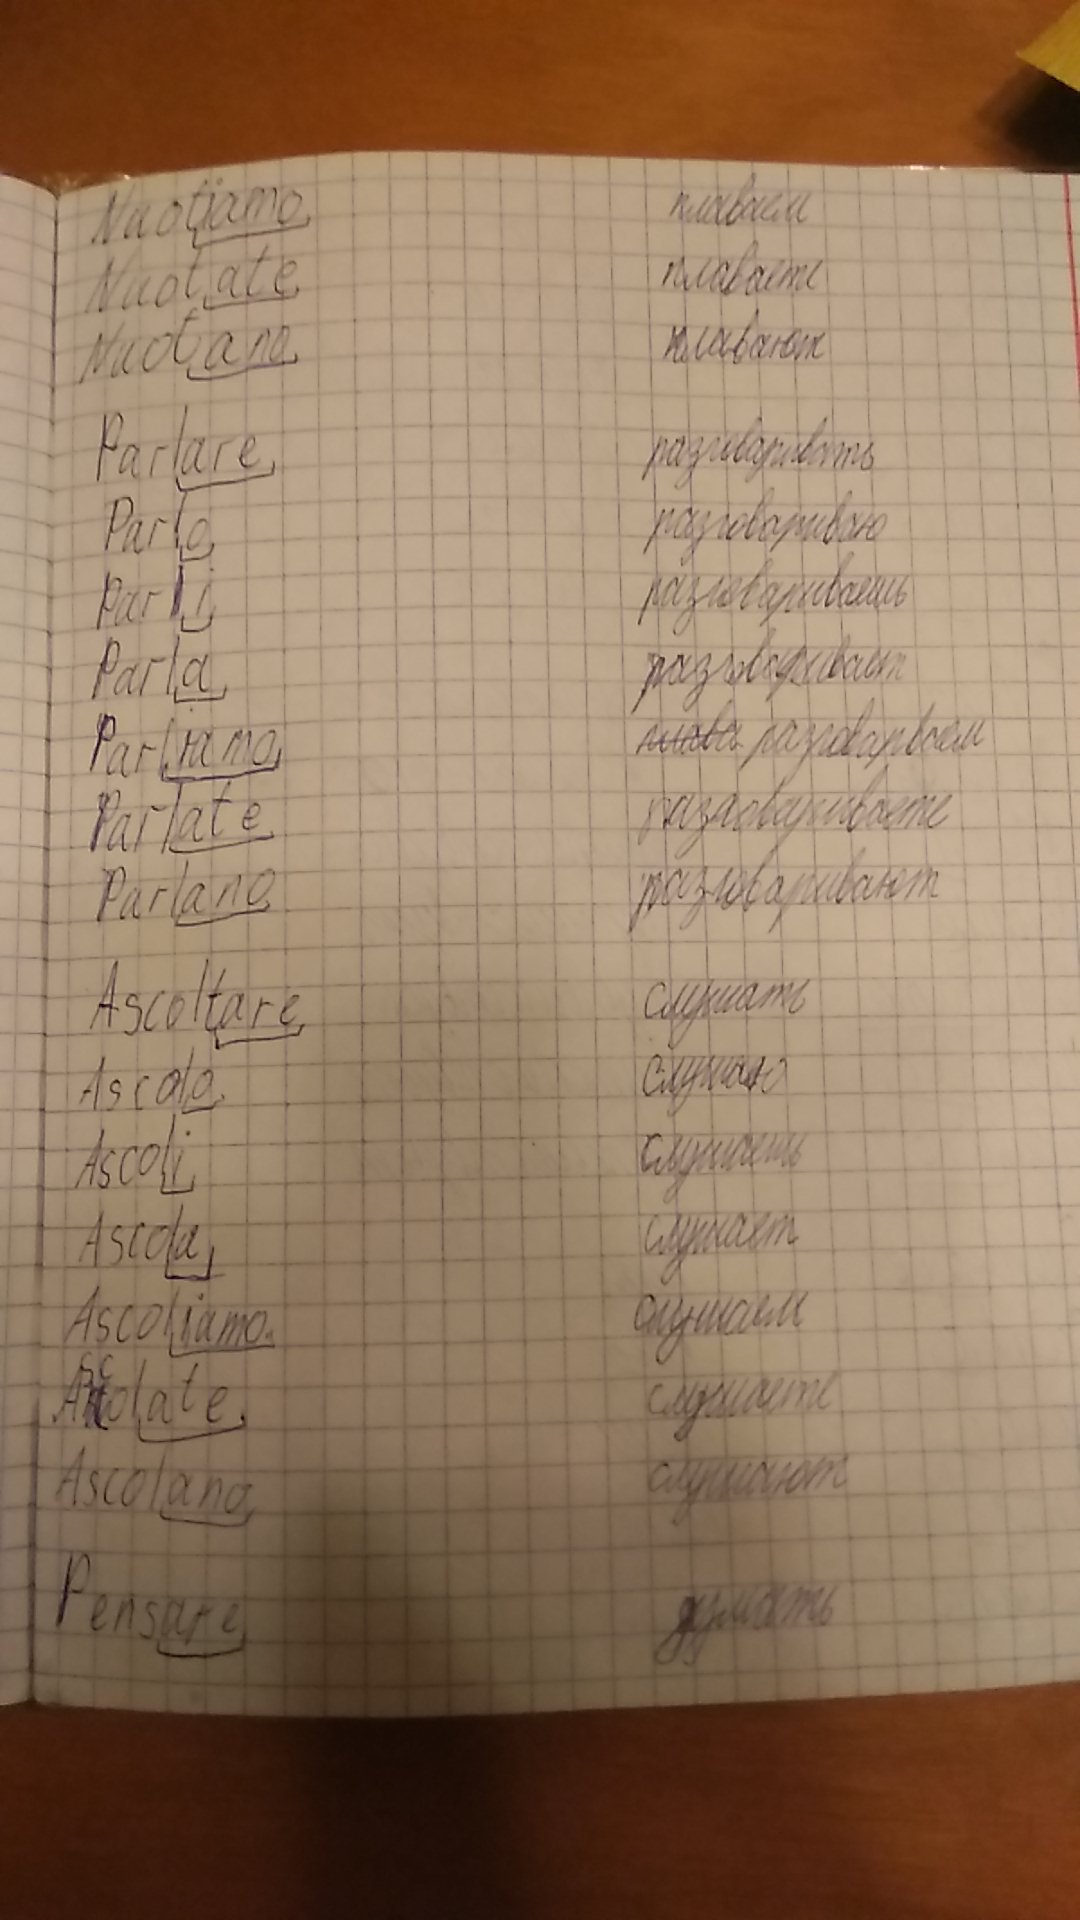 Nuotiamo плаваем
Nuotate плаваете
Nuotano плавают
Parlare разговаривать
Parlo разговариваю
Parli разговариваешь
Parla разговаривает
Parliamo плава разговарваем
Parlate разговариваете
Parlano разговаривают
Ascoltare слушать
Ascolo слушаю
Ascoli слушаешь
Ascola слушает
Ascoliamo слушаем
Ascolate слушаете
Ascolano слушают
Pensare думать